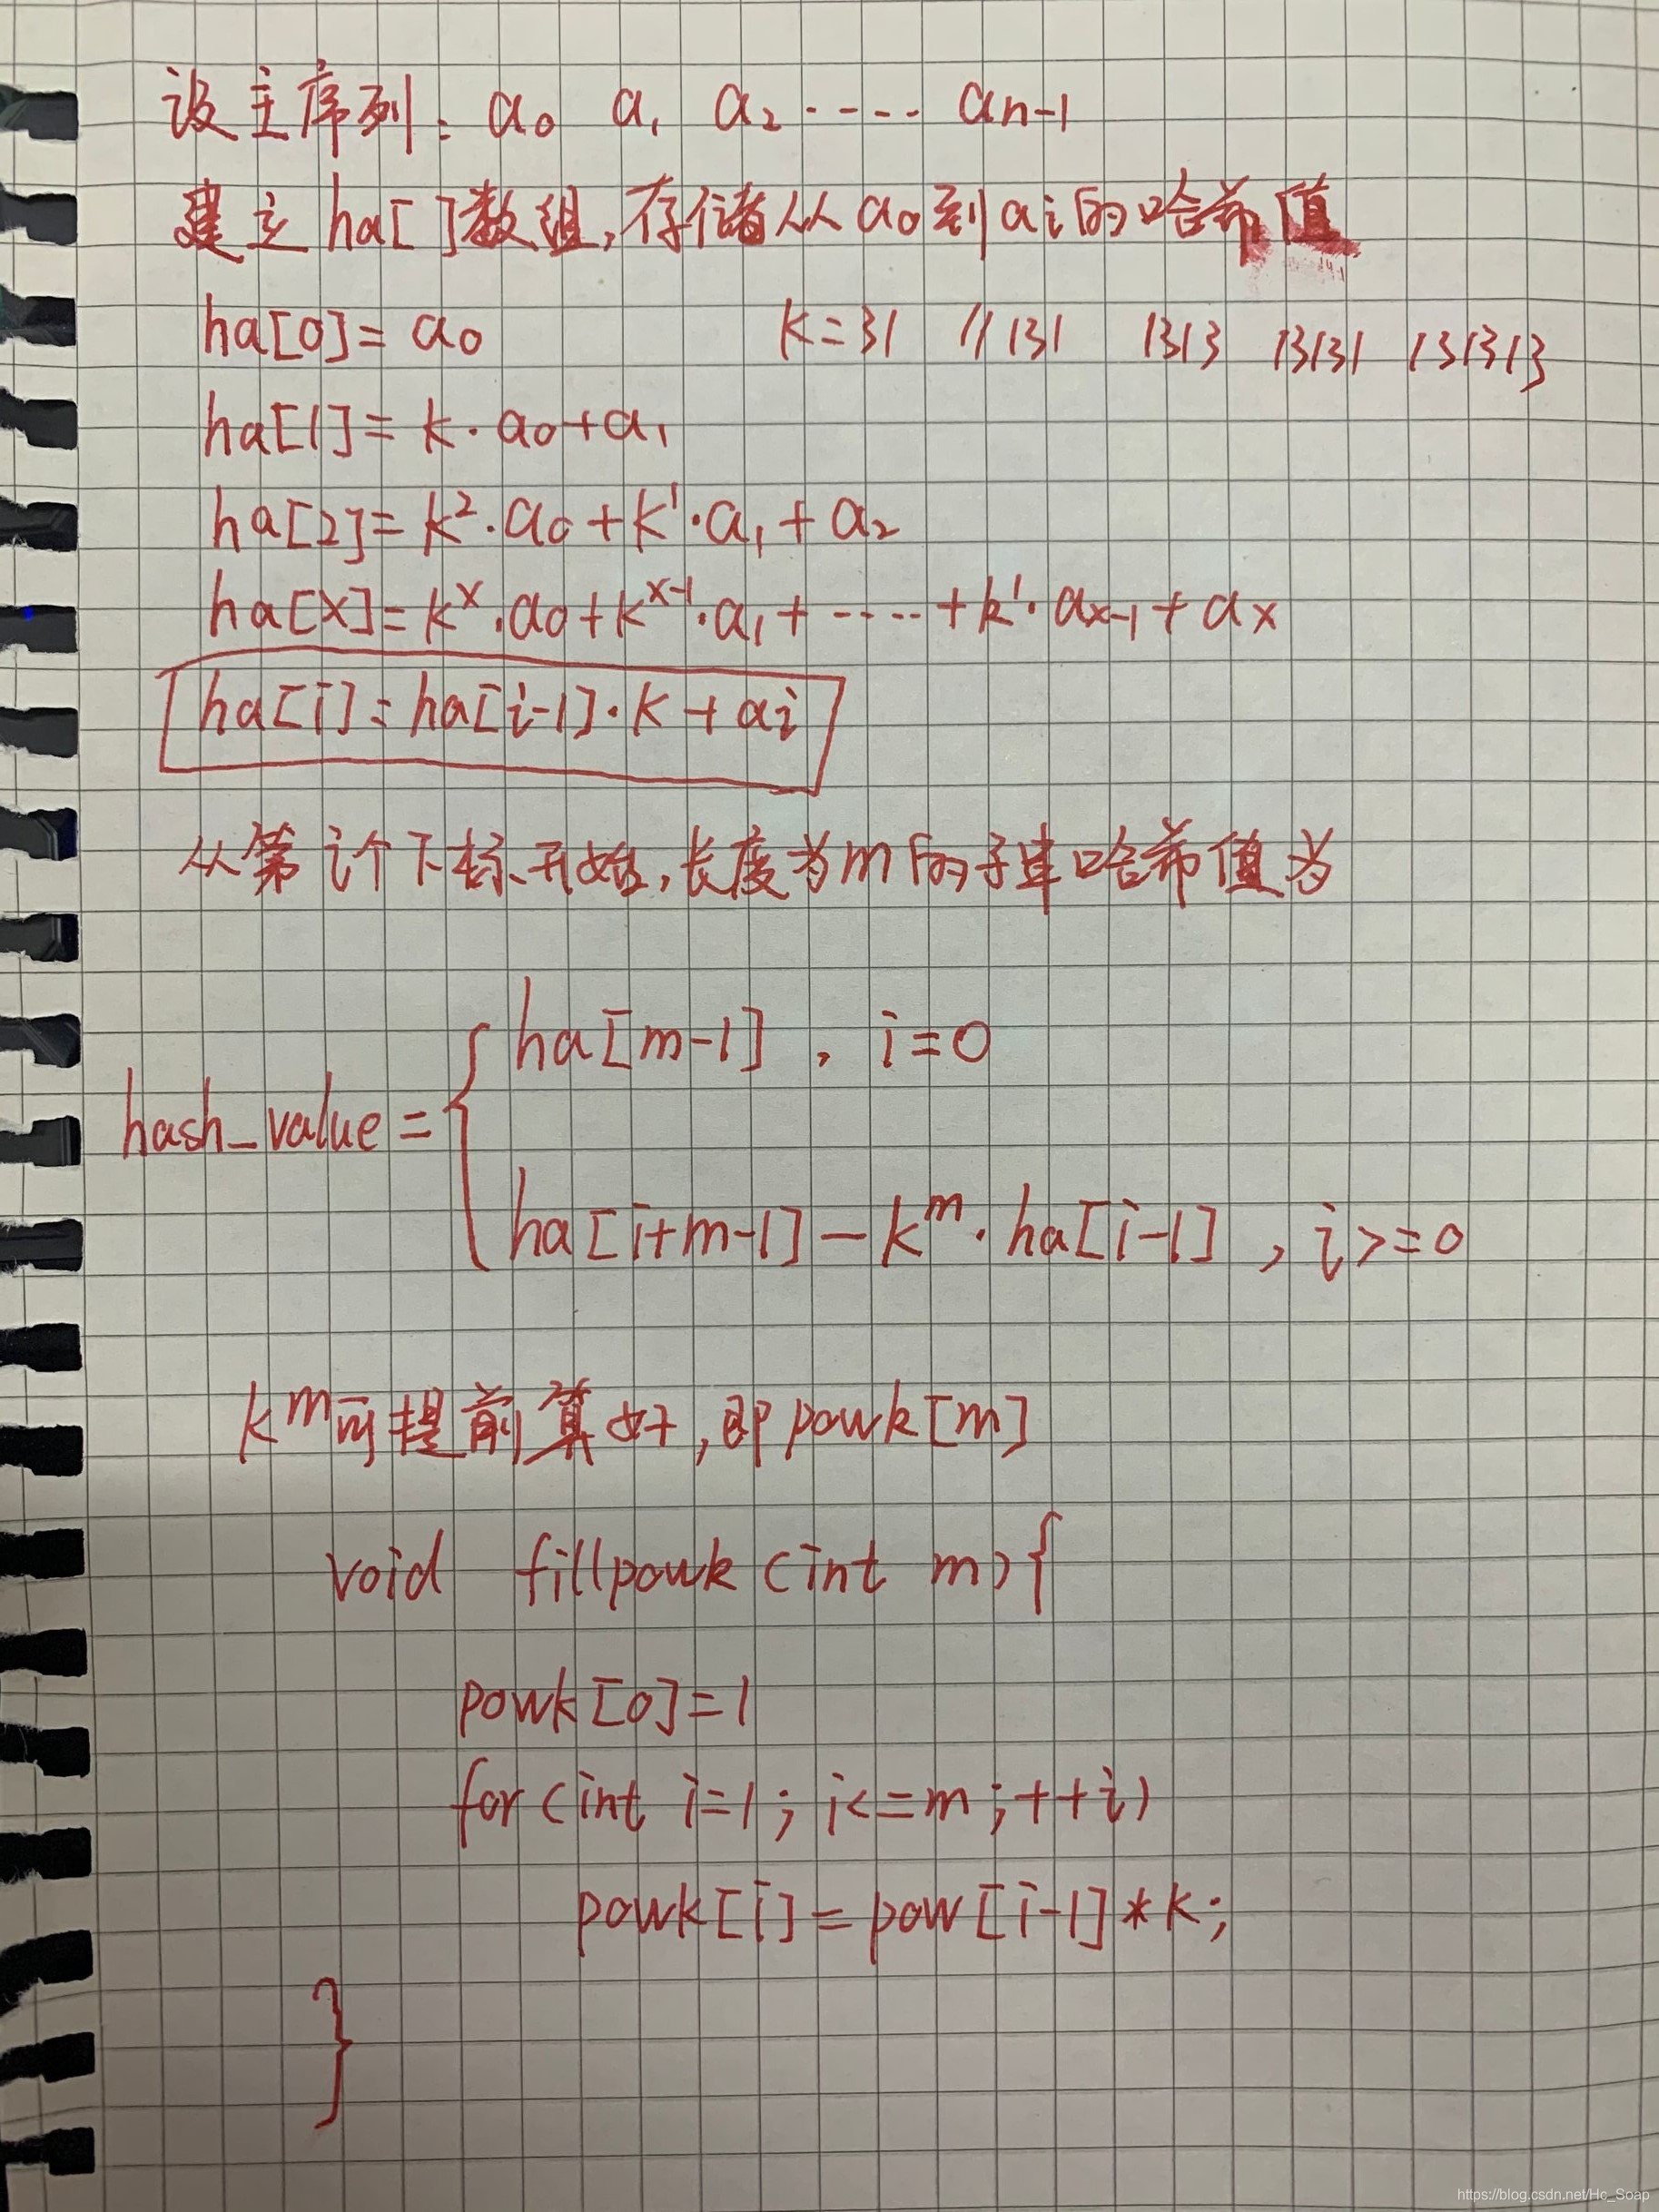 设主序列: a₀ a₁ a₂ ····· aₙ₋₁
建立 ha[ ]数组,存储从a₀到aᵢ的哈希值
ha[0]= a₀ k=31 // 131 1313 13131 131313
ha[1]= k·a₀+a₁
ha[2]= k²·a₀+k¹·a₁+a₂
ha[x]= kˣ·a₀+kˣ⁻¹·a₁+·····+k¹·aₓ₋₁+aₓ
ha[i]=ha[i-1]·k+aᵢ
从第i个下标开始,长度为m的子串哈希值为
hash_value = {
ha[m-1] , i=0
ha[i+m-1]-kᵐ·ha[i-1] , i>=0
kᵐ可提前算好,即powk[m]
void fillpowk (int m){
powk[0]=1
for(int i=1; i<=m;++i)
powk[i]=pow[i-1]*k;
}
https://blog.csdn.net/Hc_Soap